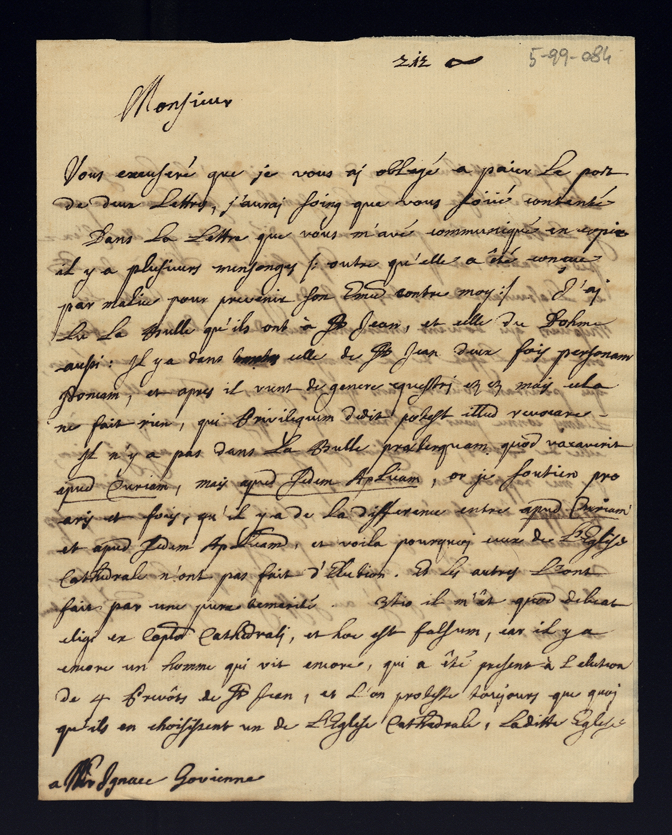 212
5-99-084
Monsieur
Vous excuseré que je vous aj oblegé a païer Le port
de deux Lettres, j'aurai soing que vous soïié contenté
Dans La Lettre que vous m'avé communiqué en copie
il y a plusieurs mensonges /: outre qu'elle a été conçue
par malice pour prevenir son Emce contre moy :/ J'aj
Lu La Bulle qu'ils ont à St Jean, et celle du Dohme
aussi: Il y a dans celle de St Jean deux fois personam
, et apres il vient de genere equestri &c &c mais cela
ne fait rien, qui Privilegium dedit potest illud revocare -
Il n'y a pas dans La Bulle præterquam quod vacaverit
apud Curiam, mais apud Sedem Aplicam, or je soutien pro
aris et focis, qu'il y a de la difference entre apud Curiam
et apud Sedem Aplicam, et voila pourquoi ceux de L'Eglise
Cathedrale n'ont pas fait d'Election. Et Les autres L'ont
fait par une pure temerité - 3tio il m'et quod debeat
eligi ex Caplo Cathedrali, et hoc est falsum, car il y a
encore un homme qui vit encore, qui a été present à L'election
de 4 Prevôts de St Jean, et L'on proteste toujours que quoj
qu'ils en choisissent un de L'Eglise Cathedrale, Laditte Eglise
a Mr Ignace Govienne